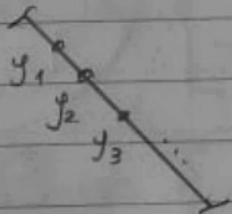 y1
y2
y3
...